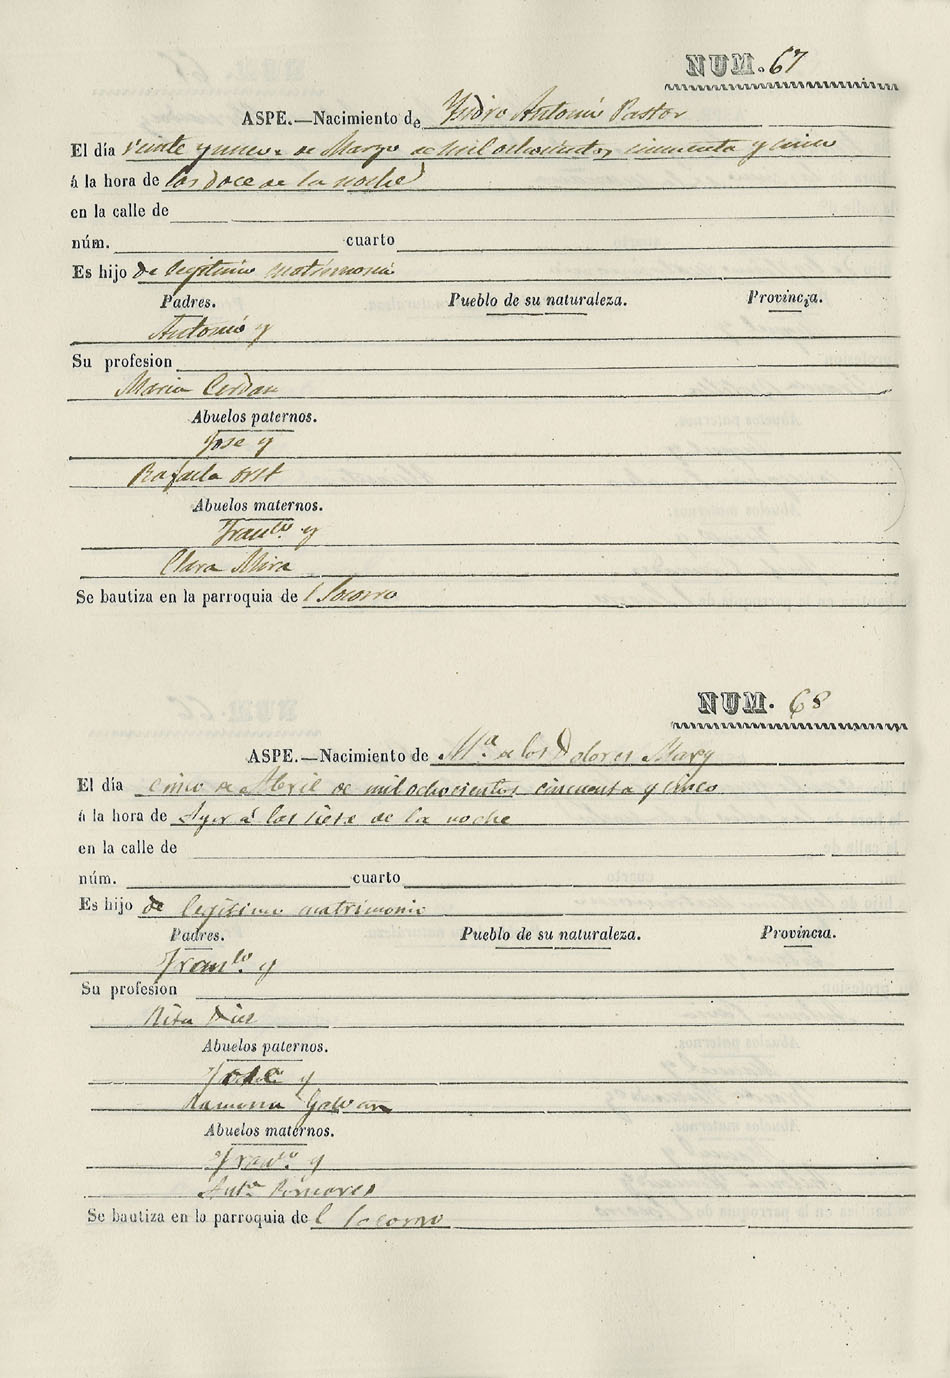 NUM. 67
ASPE.—Nacimiento de Ysidro Antonio Pastor
El día veinte y nueve de Marzo de mil ochocientos cincuenta y cinco
á la hora de las doce de la noche
en la calle de
núm. cuarto
Es hijo de legitimo matrimonio
Padres. Pueblo de su naturaleza. Provincia.
Antonio y
Su profesion
Maria Cerdan
Abuelos paternos.
Jose y
Rafaela
Abuelos maternos.
Franco. y
Clara Mira
Se bautiza en la parroquia de l Socorro
NUM. 68
ASPE.—Nacimiento de Ma. de los Dolores
El día cinco de Abril de mil ochocientos cincuenta y cinco
á la hora de Ayer á las siete de la noche
en la calle de
núm. cuarto
Es hijo de legitimo matrimonio
Padres. Pueblo de su naturaleza. Provincia.
Franco. y
Su profesion
Rita
Abuelos paternos.
Jose y
Ramona Galvan
Abuelos maternos.
Franco. y
Anta. Pomares
Se bautiza en la parroquia de l Socorro